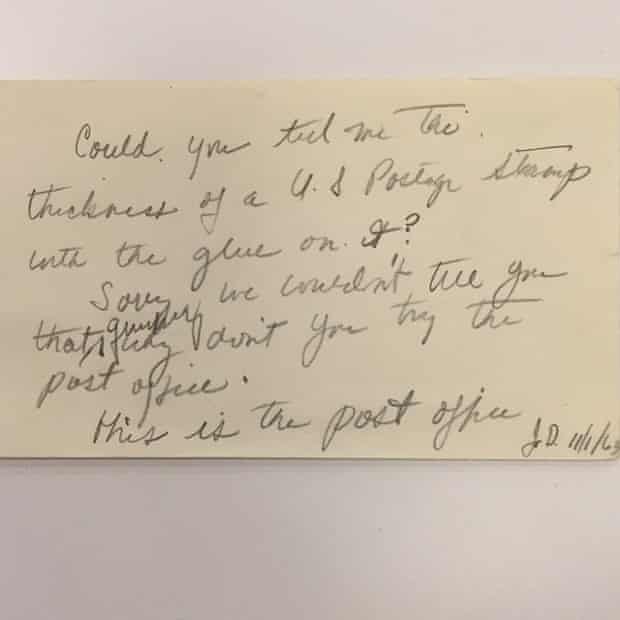 Could you tell me the
thickness of a U.S Postage Stamp
with the glue on it?
Sorry we couldn't tell you
that, quickly Why don't you try the
post office.
This is the post office
J.D.